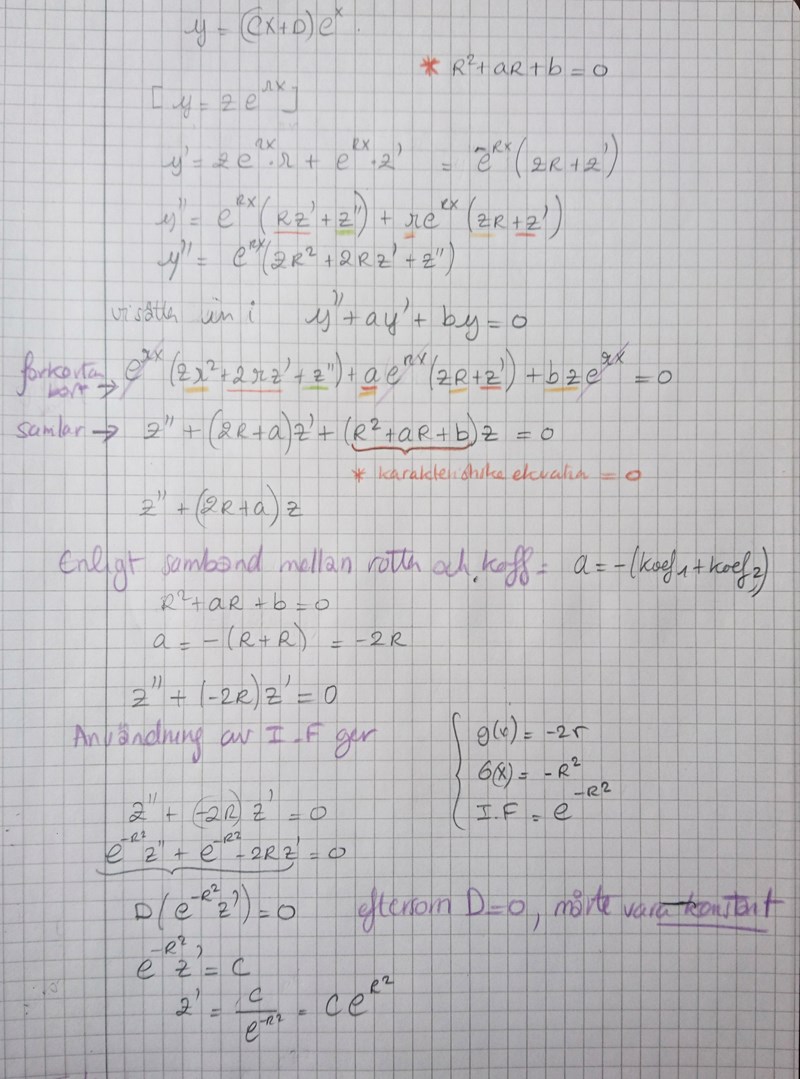 y = (Cx+D)e^x.
* R²+aR+b=0
[y = z e^{rx}]
y' = ze^{rx}·r + e^{Rx}·z' = e^{Rx}(zR+z')
y'' = e^{Rx}(Rz'+z'') + re^{rx}(zR+z')
y'' = e^{rx}(zR²+2Rz'+z'')
in i y''+ay'+by=0
förkorta bort → e^{rx}(zr²+2rz'+z'')+ae^{rx}(zR+z')+bze^{rx} = 0
samlar → z''+(2R+a)z'+(R²+aR+b)z = 0
* karakteristiska ekvation = 0
z''+(2R+a)z
Enligt samband mellan rötter och koeff = a = -(koef₁+koef₂)
R²+aR+b=0
a = -(R+R) = -2R
z''+(-2R)z' = 0
Användning av I.F ger
g(x) = -2r
G(x) = -R²
I.F = e^{-R²}
z''+(-2R)z' = 0
e^{-R²}z''+e^{-R²}-2Rz' = 0
D(e^{-R²}z')=0 eftersom D=0, måste vara konstant
e^{-R²}z' = C
z' = C/e^{-R²} = Ce^{R²}